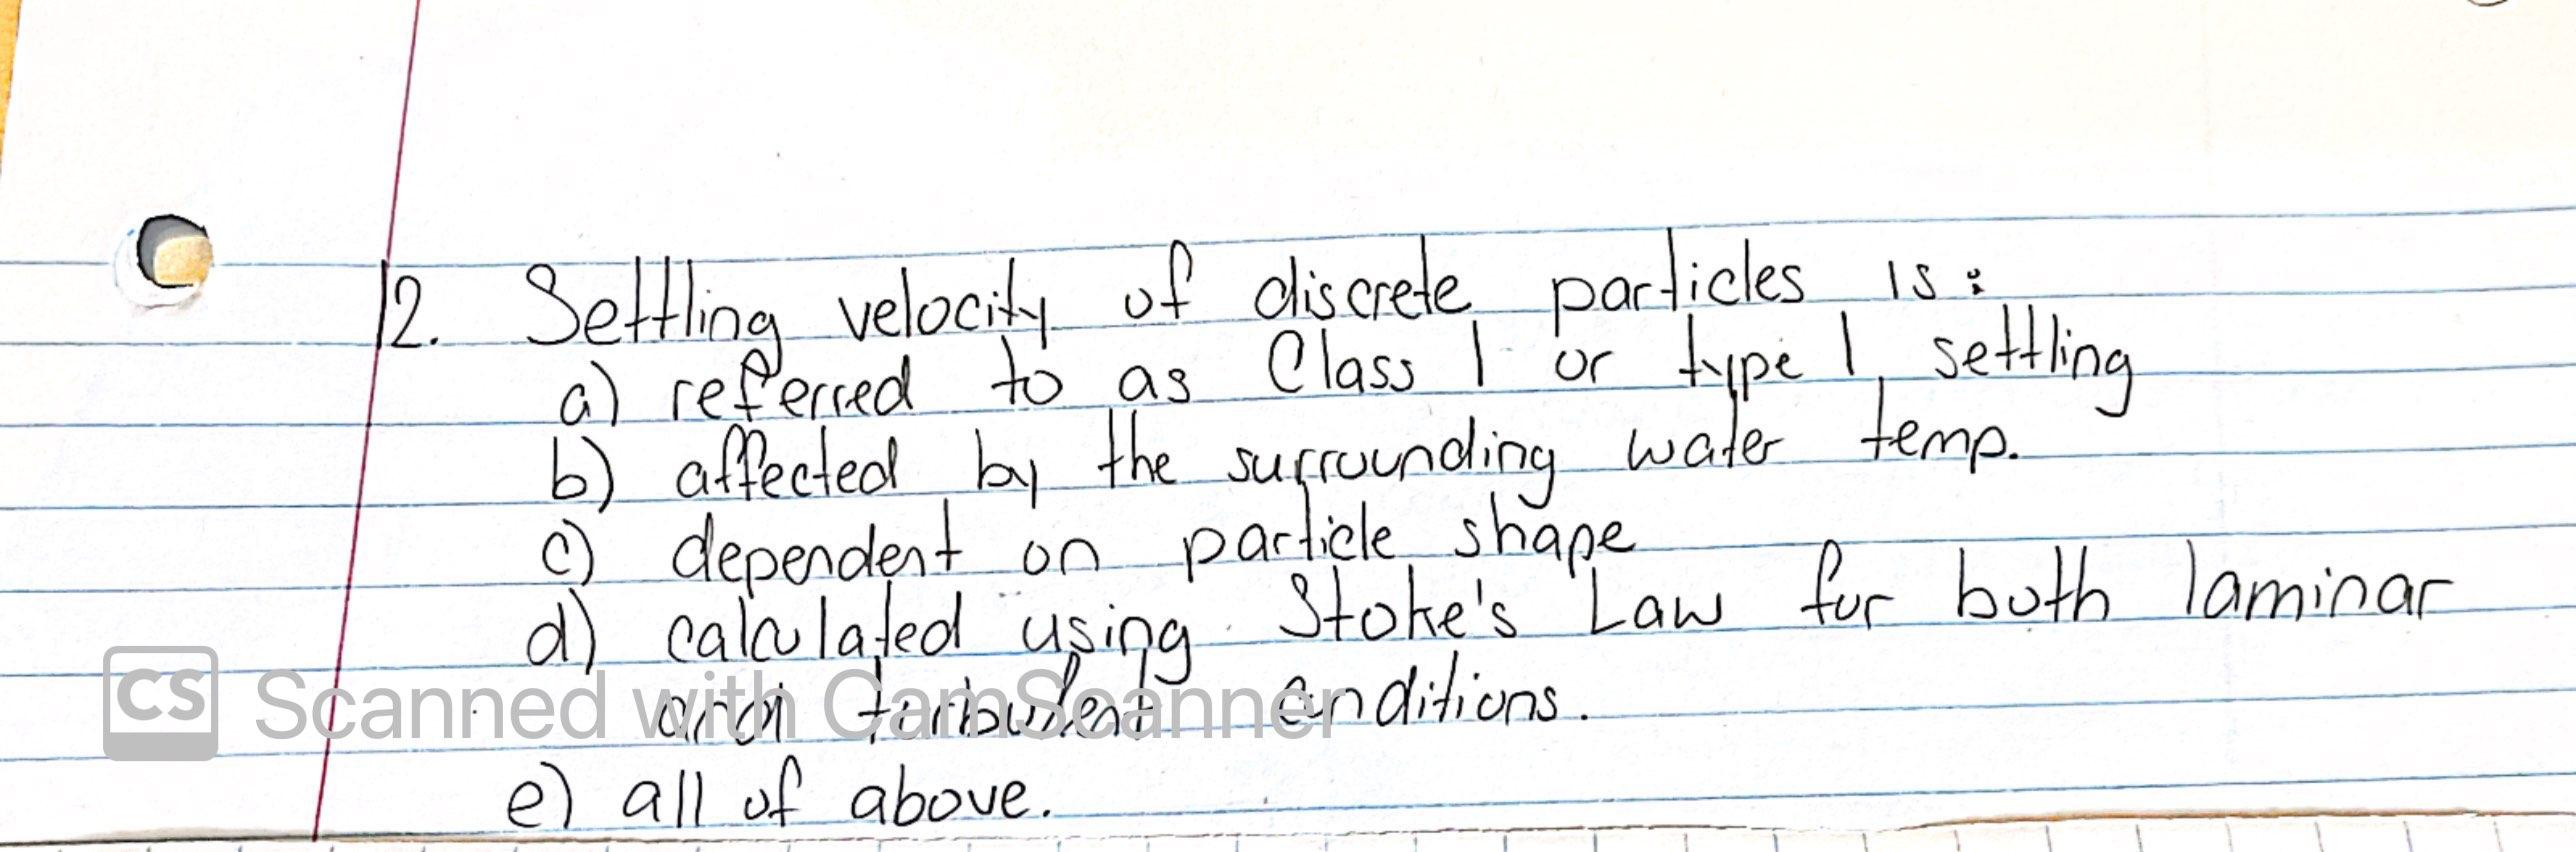 12. Settling velocity of discrete particles is:
a) referred to as Class 1 or type 1 settling
b) affected by the surrounding water temp.
c) dependent on particle shape
d) calculated using Stoke's Law for both laminar
and turbulent conditions.
e) all of above.
CS Scanned with CamScanner